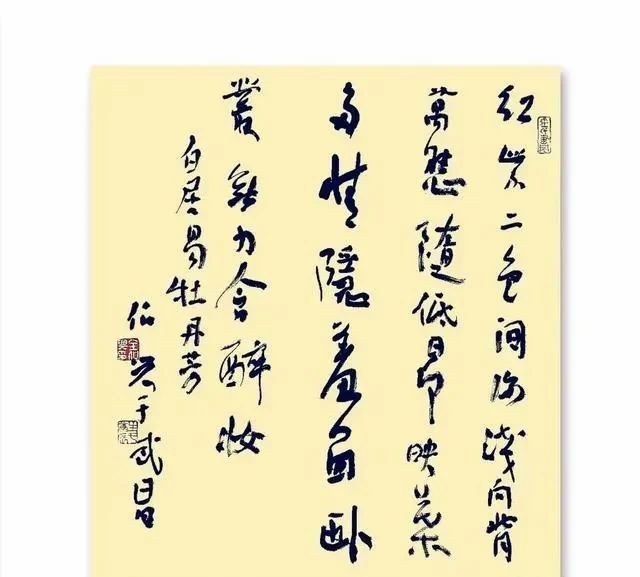 红紫二色间深淺向背
萬態隨低昂映葉
多情隱羞面卧
叢無力含醉妝
白居易牡丹芳
于武昌